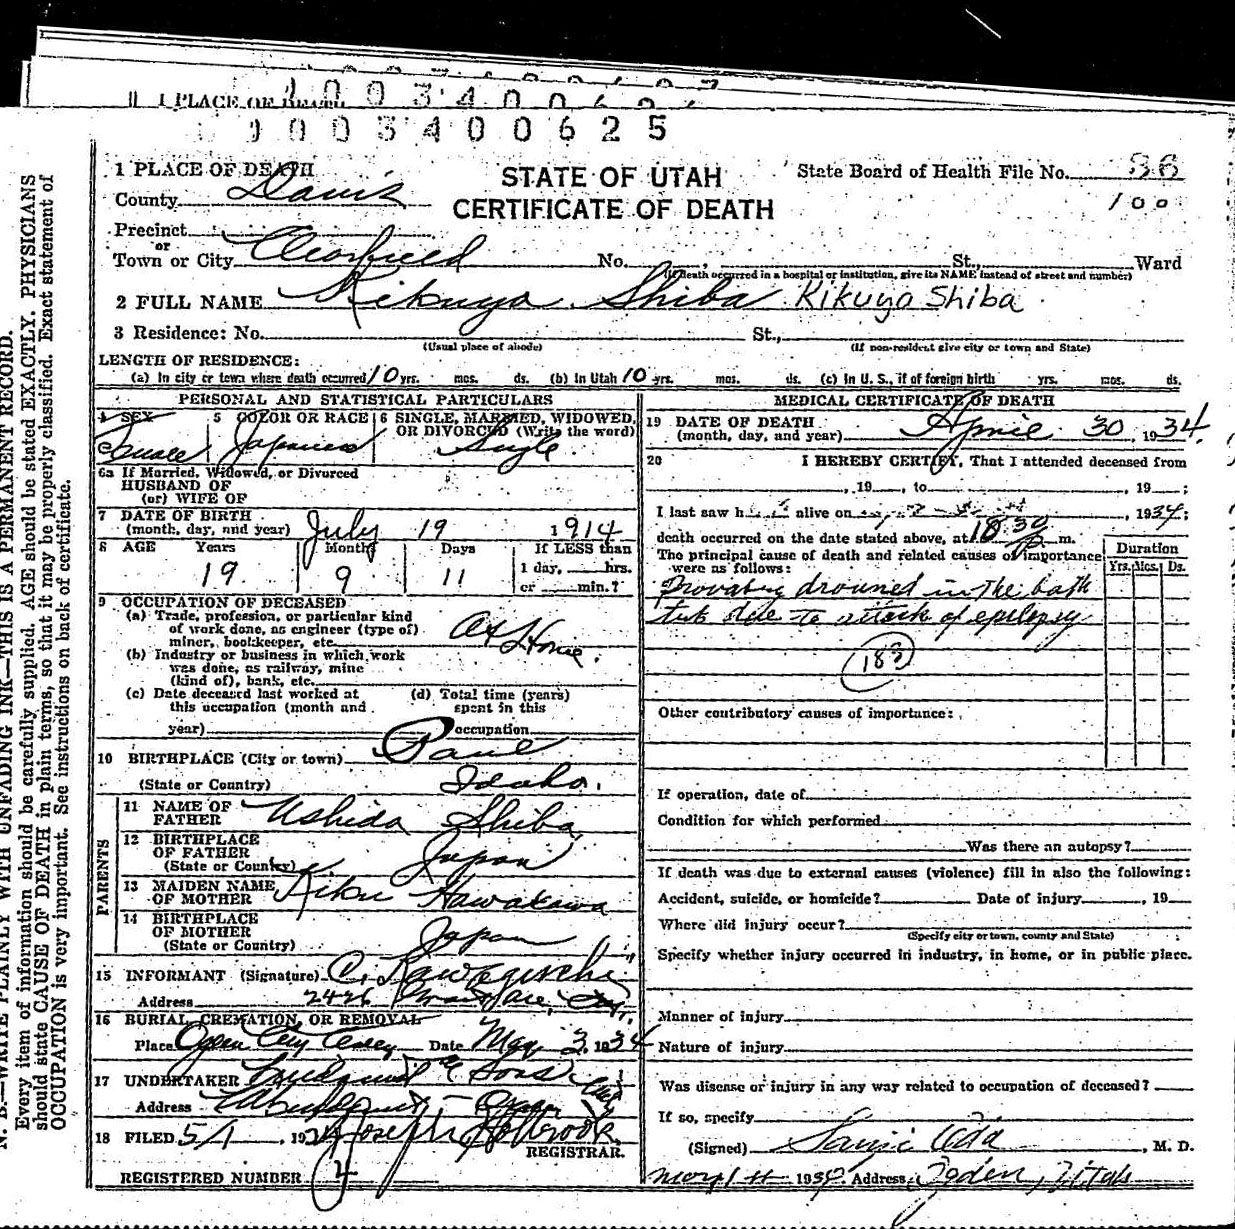 1 PLACE OF DEATH
0003400625
1 PLACE OF DEATH
STATE OF UTAH
CERTIFICATE OF DEATH
State Board of Health File No. 36
100
County Davis
Precinct
or
Town or City Clearfield No. , St., Ward
(If death occurred in a hospital or institution, give its NAME instead of street and number)
2 FULL NAME Kikuyo Shiba Kikuyo Shiba
3 Residence: No. St.,
(Usual place of abode) (If non-resident give city or town and State)
LENGTH OF RESIDENCE:
(a) In city or town where death occurred 10 yrs. mos. ds. (b) In Utah 10 yrs. mos. ds. (c) In U. S., if of foreign birth yrs. mos. ds.
PERSONAL AND STATISTICAL PARTICULARS
4 SEX 5 COLOR OR RACE 6 SINGLE, MARRIED, WIDOWED, OR DIVORCED (Write the word)
Female Japanese Single
6a If Married, Widowed, or Divorced
HUSBAND OF
(or) WIFE OF
7 DATE OF BIRTH
(month, day, and year) July 19 1914
8 AGE Years Months Days If LESS than
19 9 11 1 day, hrs.
or min.?
9 OCCUPATION OF DECEASED
(a) Trade, profession, or particular kind
of work done, as engineer (type of)
miner, bookkeeper, etc. At Home.
(b) Industry or business in which work
was done, as railway, mine
(kind of), bank, etc.
(c) Date deceased last worked at (d) Total time (years)
this occupation (month and spent in this
year) occupation
10 BIRTHPLACE (City or town) Paul
(State or Country) Idaho.
PARENTS
11 NAME OF
FATHER Ushida Shiba
12 BIRTHPLACE
OF FATHER
(State or Country) Japan
13 MAIDEN NAME
OF MOTHER Kiku Kawakawa
14 BIRTHPLACE
OF MOTHER
(State or Country) Japan
15 INFORMANT (Signature) C.
Address 2426
16 BURIAL, CREMATION, OR REMOVAL
Place Ogden City Date May 3. 1934
17 UNDERTAKER & Sons
Address
18 FILED 5/1, 19 Joseph Holbrook
REGISTRAR.
REGISTERED NUMBER 4
MEDICAL CERTIFICATE OF DEATH
19 DATE OF DEATH
(month, day, and year) April 30, 1934.
20 I HEREBY CERTIFY, That I attended deceased from
, 19 , to , 19 ;
I last saw h alive on , 1934;
death occurred on the date stated above, at m.
The principal cause of death and related causes of importance
were as follows:
Duration
Yrs. Mos. Ds.
Provably drowned in the bath
tub due to attack of epilepsy
183
Other contributory causes of importance:
If operation, date of
Condition for which performed
Was there an autopsy?
If death was due to external causes (violence) fill in also the following:
Accident, suicide, or homicide? Date of injury , 19
Where did injury occur?
(Specify city or town, county and State)
Specify whether injury occurred in industry, in home, or in public place.
Manner of injury
Nature of injury
Was disease or injury in any way related to occupation of deceased?
If so, specify
(Signed) , M. D.
Address Ogden, Utah
N. B.—WRITE PLAINLY WITH UNFADING INK—THIS IS A PERMANENT RECORD.
Every item of information should be carefully supplied. AGE should be stated EXACTLY. PHYSICIANS
should state CAUSE OF DEATH in plain terms, so that it may be properly classified. Exact statement of
OCCUPATION is very important. See instructions on back of certificate.